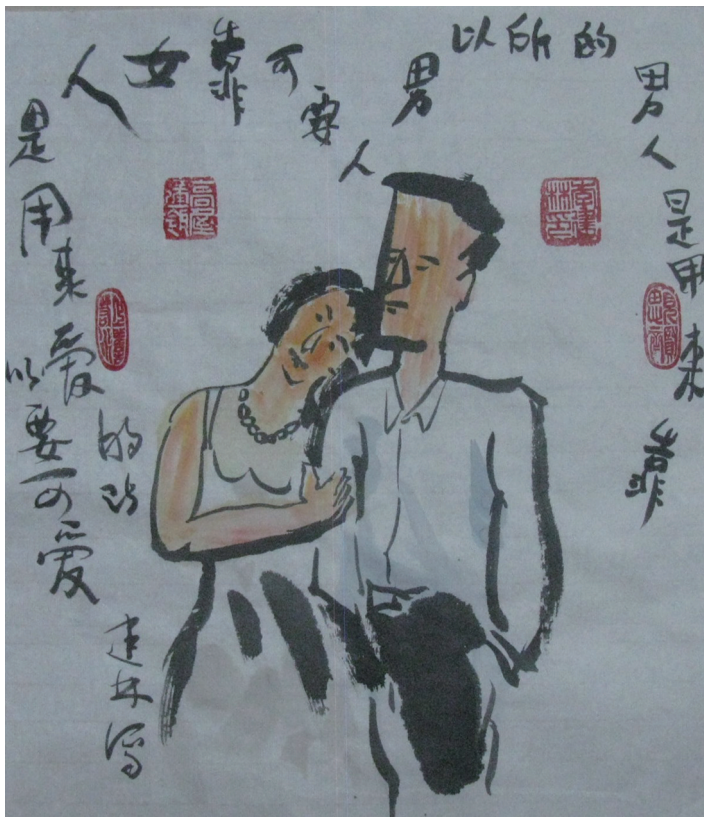 男人是用来靠
的所以男人要可靠女人
是用来爱
的所
以要可爱
建林写